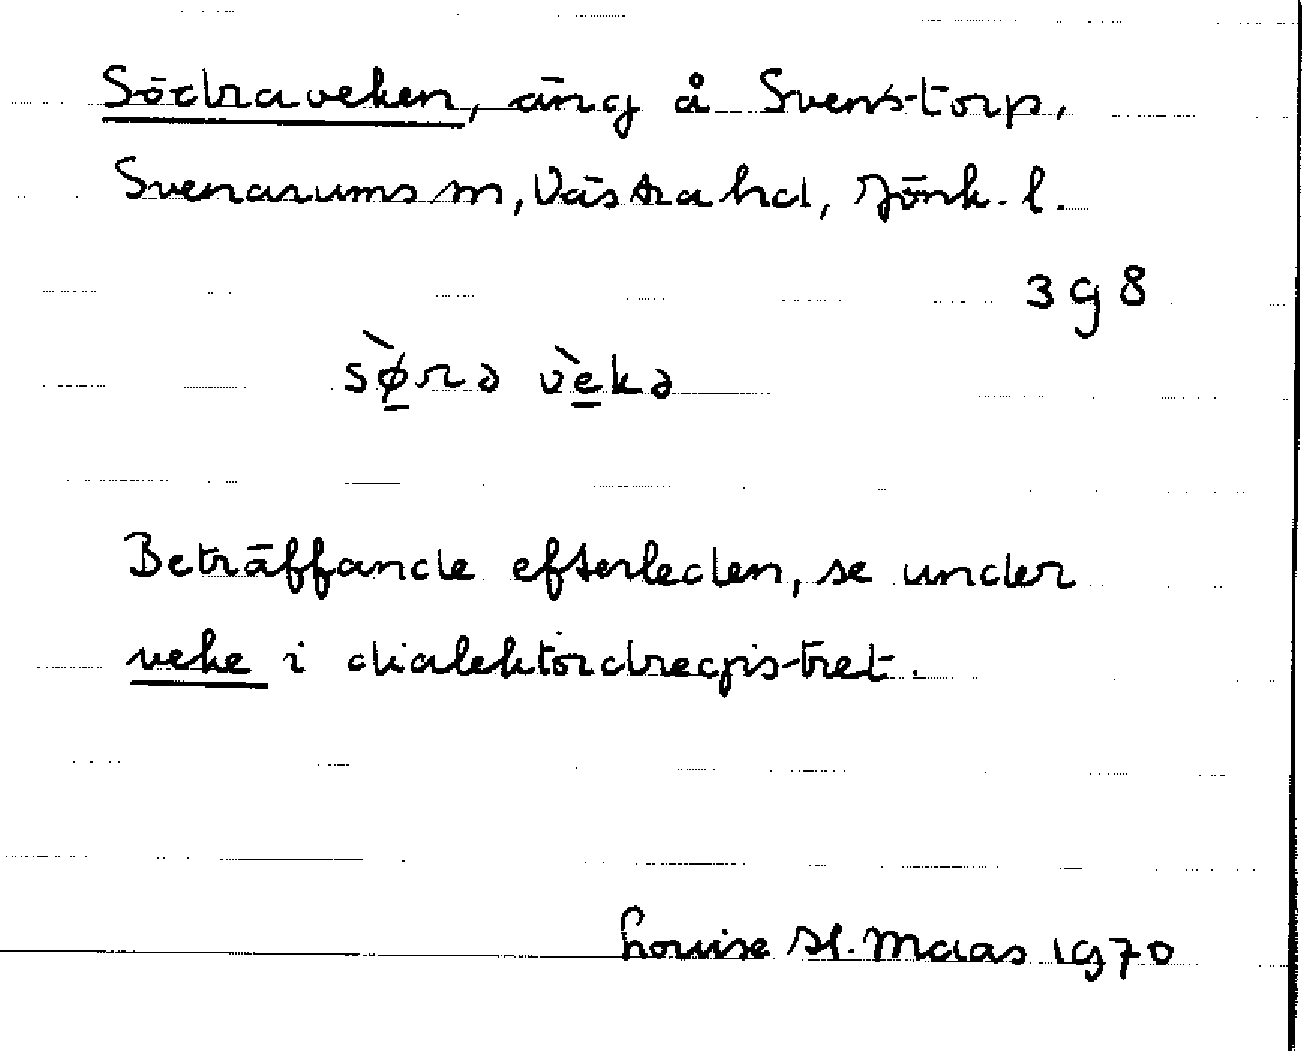 Södraveken, äng å Svenstorp,
Svenarums sn, Västra hd, Jönk. l.
3g8
sø̱̀rə vè̱kə
Beträffande efterleden, se under
veke i dialektordregistret.
Louise Sl. Maas 1970